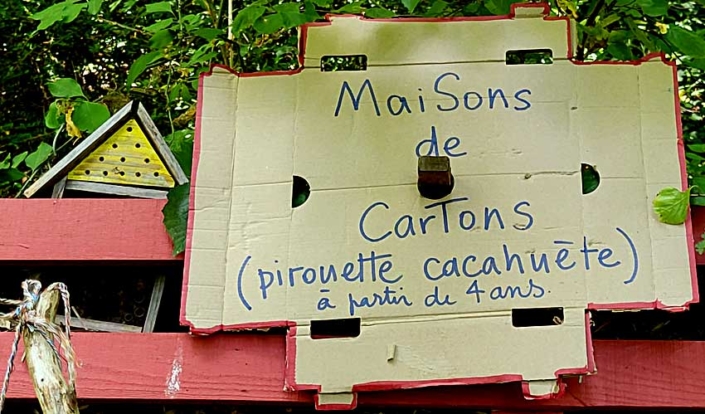 MaiSons
de
CarTons
(pirouette cacahuēte)
ā partir de 4 ans.